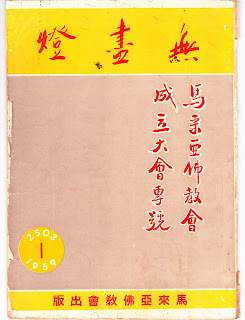 無盡燈
馬來亞佛教會
成立大會專號
2503
1
1959
馬來亞佛教會出版